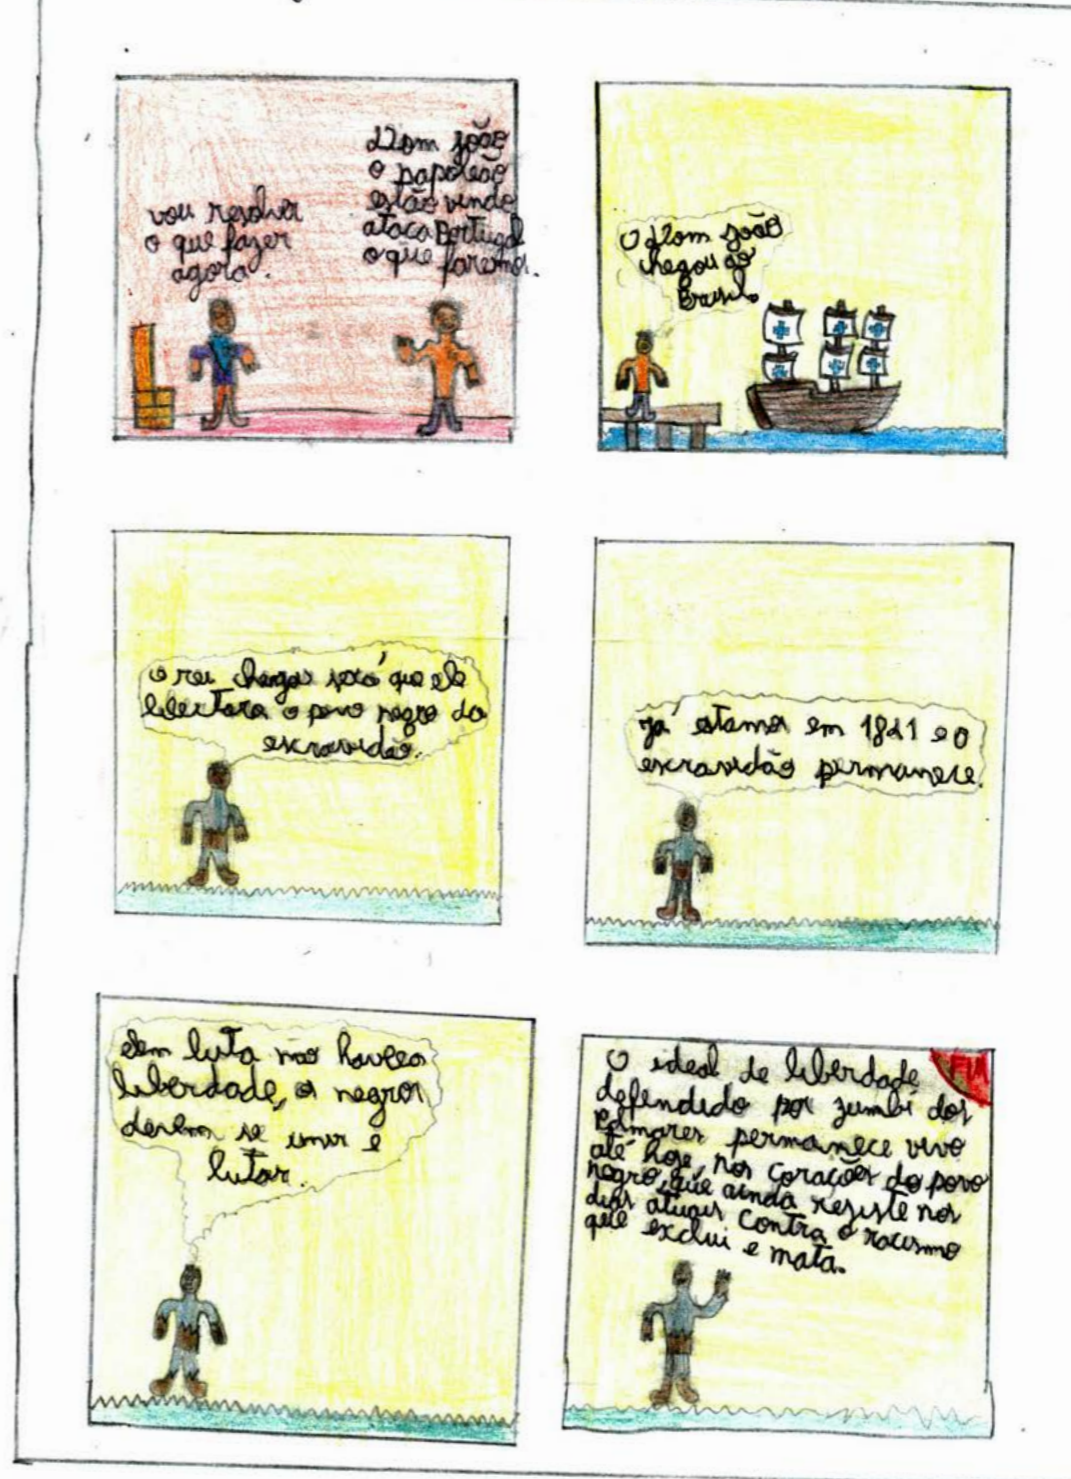 vou resolver
o que fazer
agora.
Dom joão
o papoleão
estão vindo
ataca Portugal
o que faremos.
O Dom joão
chegou ao
Brasil.
o rei chegou será que ele
libertara o povo negro da
escravidão.
já estamos em 1821 e o
escravidão permanece.
Sem luta não havera
liberdade, os negros
devem se unir e
lutar.
FIM
O ideal de liberdade
defendido por zumbi dos
Palmares permanece vivo
até hoje, nos corações do povo
negro, que ainda resiste nos
dias atuais contra o racismo
que exclui e mata.